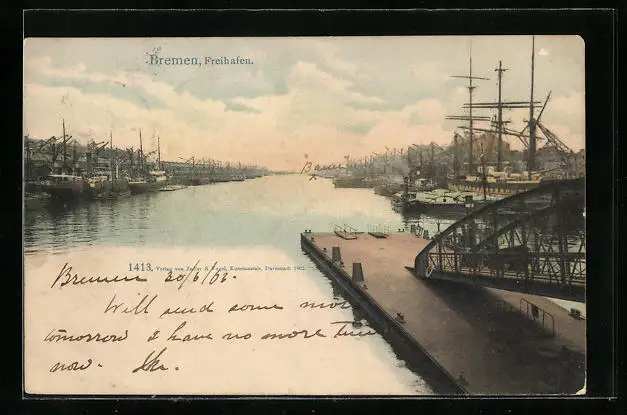 Bremen, Freihafen.
1413. Verlag von Zedler & Vogel, Kunstanstalt, Darmstadt 1902.
Bremen 20/6/02.
Will send some mor
tomorrow I have no more time
now.